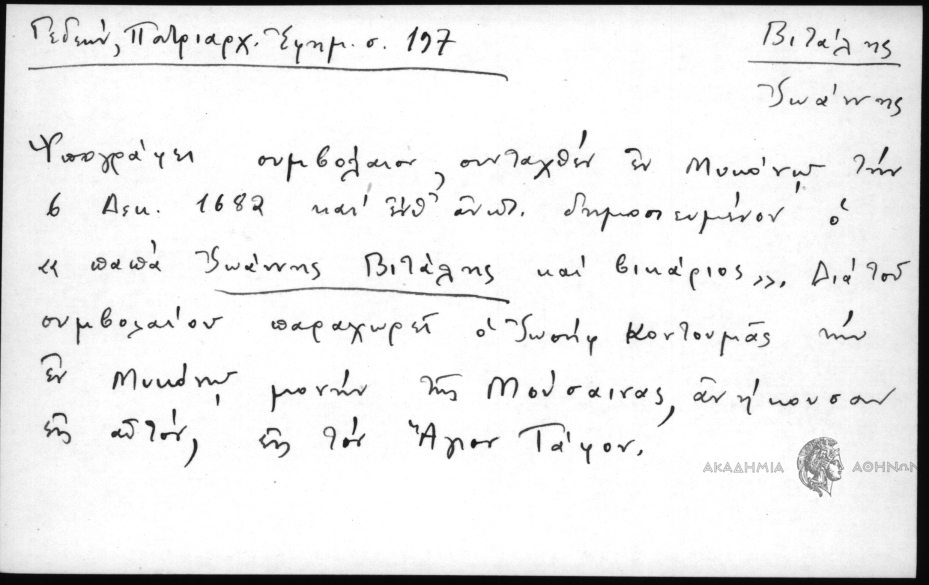 Γεδεών, Πατριαρχ. Ἐφημ. σ. 197
Βιτάλης
Ἰωάννης
Ὑπογράφει συμβόλαιον, συνταχθέν ἐν Μυκόνῳ τήν
6 Δεκ. 1682 καί ἐνθ' ἀνωτ. δημοσιευμένον ὁ
«παπά Ἰωάννης Βιτάλης καί βικάριος». Διά τοῦ
συμβολαίου παραχωρεῖ ὁ Ἰωσήφ Κοντουμᾶς τήν
ἐν Μυκόνῳ μονήν τῆς Μούσαινας, ἀνήκουσαν
εἰς αὐτόν, εἰς τόν Ἅγιον Τάφον.
ΑΚΑΔΗΜΙΑ ΑΘΗΝΩΝ